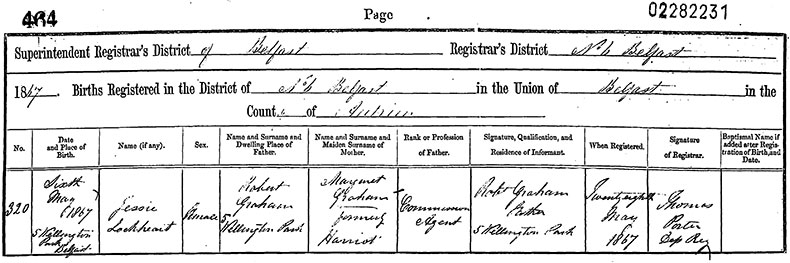 464
Page
02282231
Superintendent Registrar's District of Belfast Registrar's District No. 6 Belfast
1867. Births Registered in the District of No. 6 Belfast in the Union of Belfast in the
County of Antrim
No. Date and Place of Birth. Name (if any). Sex. Name and Surname and Dwelling Place of Father. Name and Surname and Maiden Surname of Mother. Rank or Profession of Father. Signature, Qualification, and Residence of Informant. When Registered. Signature of Registrar. Baptismal Name if added after Registration of Birth, and Date.
320
Sixth
May
1867
5 Wellington
Park
Belfast
Jessie
Lockheart
Female
Robert
Graham
5
Wellington Park
Margaret
Graham
formerly
Harriot
Commission
Agent
Robt Graham
Father
5 Wellington Park
Twenty eighth
May
1867
Thomas
Porter
Dep Reg